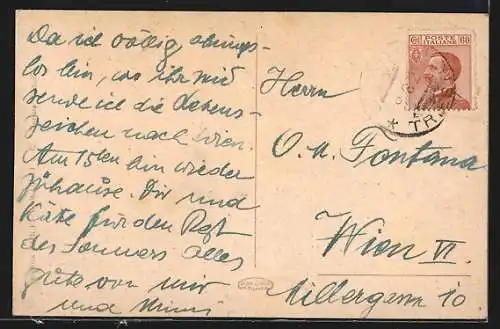 Da ich völlig ahnungs-
los bin, wo ihr seid
sende ich die Lebens-
zeichen nach Wien.
Am 15ten bin wieder
zuhause. Dir und
Käte für den Rest
des Sommers alles
gute von mir
und Mimi
60 POSTE ITALIANE 60
* TR
Herrn
O. M. Fontana
Wien VI.
Millergasse 10